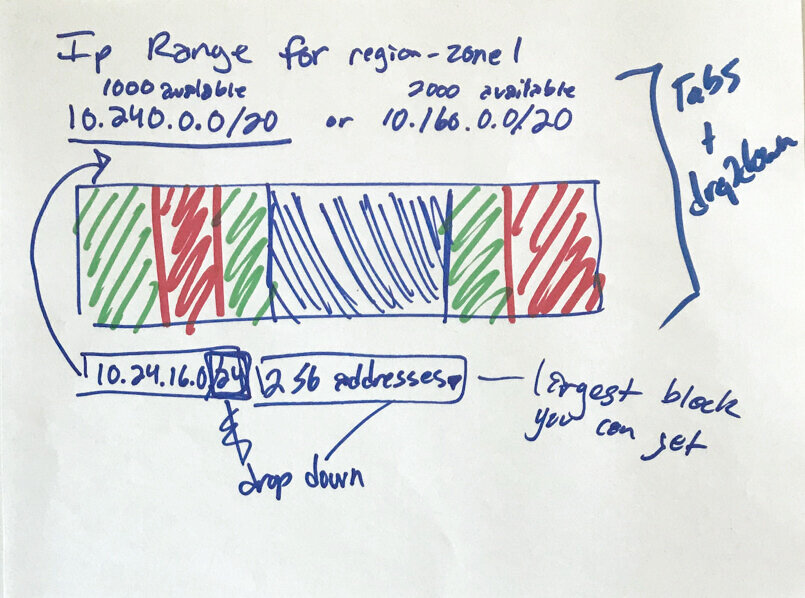 Ip Range for region-zone1
1000 available 2000 available
10.240.0.0/20 or 10.160.0.0/20
Tabs
+
dropdown
10.24.16.0 24 256 addresses
largest block
you can get
drop down